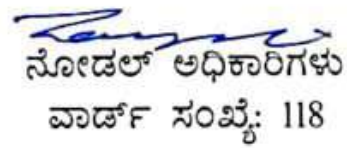 ನೋಡಲ್ ಅಧಿಕಾರಿಗಳು
ವಾರ್ಡ್ ಸಂಖ್ಯೆ: 118